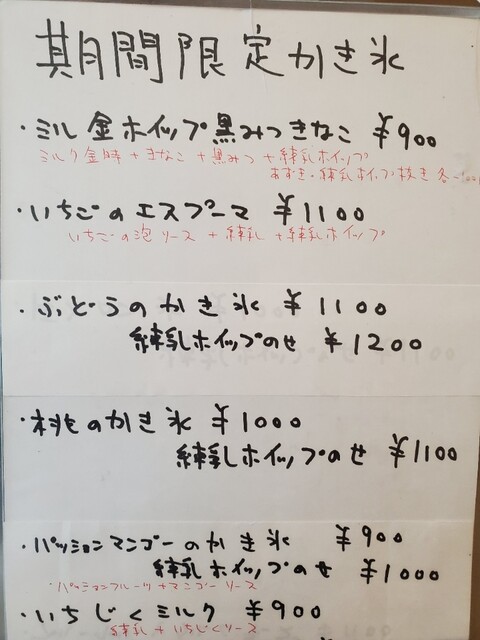 期間限定かき氷
・ミル金ホイップ黒みつきなこ ¥900
ミルク金時+きなこ+黒みつ+練乳ホイップ
あずき・練乳ホイップ抜き各-100円
・いちごのエスプーマ ¥1100
いちごの泡ソース+練乳+練乳ホイップ
・ぶどうのかき氷 ¥1100
練乳ホイップのせ ¥1200
・桃のかき氷 ¥1000
練乳ホイップのせ ¥1100
・パッションマンゴーのかき氷 ¥900
練乳ホイップのせ ¥1000
・パッションフルーツ+マンゴーソース
・いちじくミルク ¥900
練乳+いちじくソース